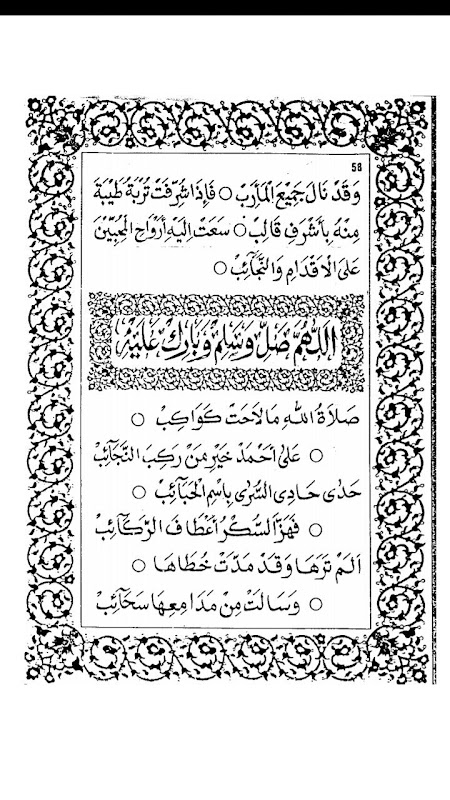 58
وَقَدْ نَالَ جَمِيْعَ الْمَأٰرِبْ ○ فَإِذَا شُرِّفَتْ تُرْبَةُ طَيْبَةَ
مِنْهُ بِأَشْرَفِ قَالِبْ ○ سَعَتْ إِلَيْهِ أَرْوَاحُ الْمُحِبِّيْنَ
عَلَى الْاَقْدَامِ وَالنَّجَآئِبْ ○
اَللّٰهُمَّ صَلِّ وَسَلِّمْ وَبَارِكْ عَلَيْهِ
صَلَاةُ اللّٰهِ مَا لَاحَتْ كَوَاكِبْ ○
○ عَلَى اَحْمَدْ خَيْرِ مَنْ رَكِبَ النَّجَآئِبْ
حَدٰى حَادِى السُّرٰى بِاسْمِ الْحَبَآئِبْ ○
○ فَهَزَّ السُّكْرُ أَعْطَافَ الرَّكَآئِبْ
اَلَمْ تَرَهَا وَقَدْ مَدَّتْ خُطَاهَا ○
○ وَسَالَتْ مِنْ مَدَامِعِهَا سَحَآئِبْ